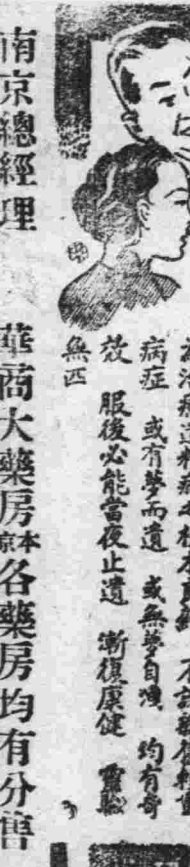 病症 或有夢而遺 或無夢自洩 均有奇
效 服後必能當夜止遺 漸復康健 靈驗
無匹
南京總經理 華商大藥房 本京各藥房均有分售